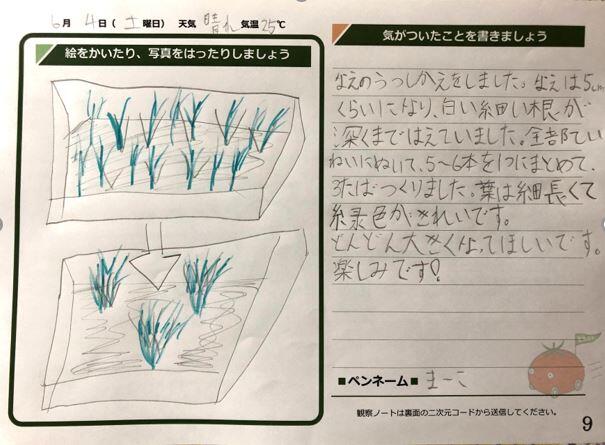 6月 4日(土曜日) 天気 晴れ 気温25℃
絵をかいたり、写真をはったりしましょう
気がついたことを書きましょう
なえのうつしかえをしました。なえは5cm
くらいになり、白い細い根が
深くまではえていました。全部てい
ねいにぬいて、5〜6本を1つにまとめて、
3たばつくりました。葉は細長くて
緑色がきれいです。
どんどん大きくなってほしいです。
楽しみです!
■ペンネーム■ まーこ
観察ノートは裏面の二次元コードから送信してください。
9